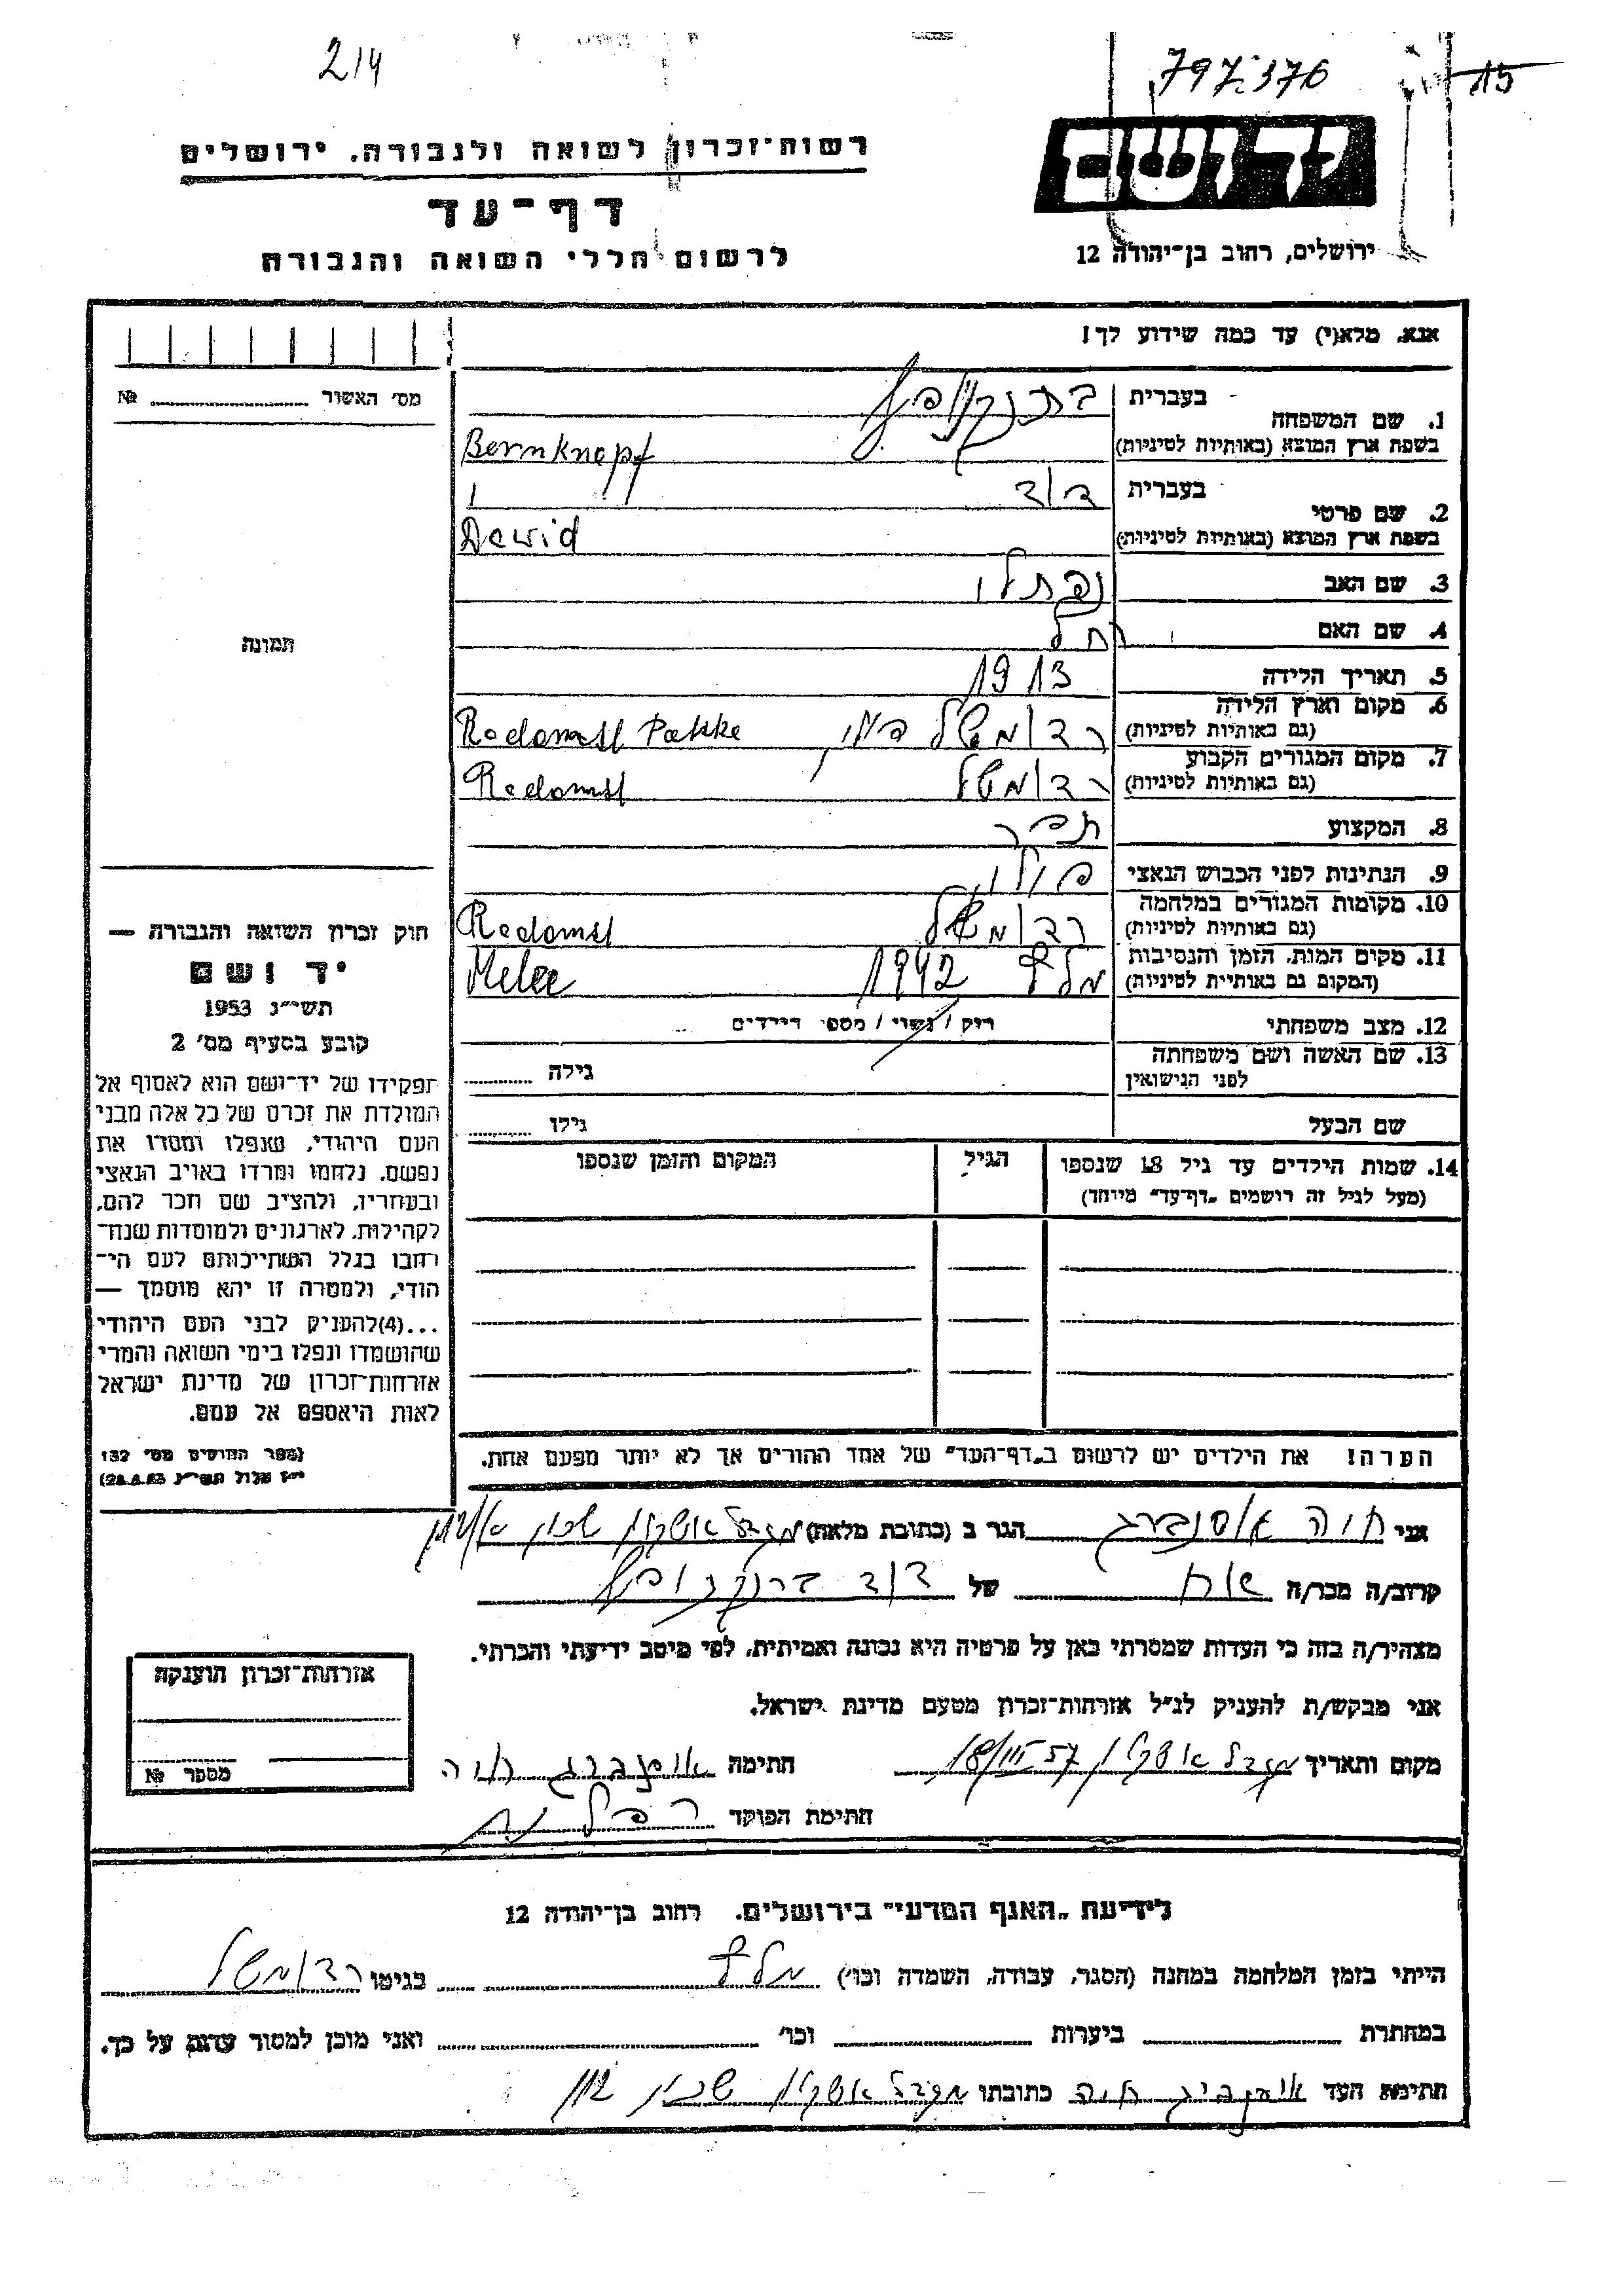 214
797.376
15
רשות־זכרון לשואה ולגבורה. ירושלים
יד ושם
דף־עד
לרשום חללי השואה והגבורה
ירושלים, רחוב בן־יהודה 12
אנא, מלא(י) עד כמה שידוע לך!
מס׳ האשור №
תמונה
1. שם המשפחה
בעברית
בשפת ארץ המוצא (באותיות לטיניות)
Bernknopf
2. שם פרטי
בעברית דוד
בשפת ארץ המוצא (באותיות לטיניות)
Dawid
3. שם האב נפתלי
4. שם האם רחל
5. תאריך הלידה 1913
6. מקום וארץ הלידה
(גם באותיות לטיניות) רדומשל פולין Radomsl
7. מקום המגורים הקבוע
(גם באותיות לטיניות) רדומשל Radomsl
8. המקצוע תפר
9. הנתינות לפני הכבוש הנאצי פולין
10. מקומות המגורים במלחמה
(גם באותיות לטיניות) רדומשל Radomsl
11. מקום המות, הזמן והנסיבות
(המקום גם באותיות לטיניות) 1942
12. מצב משפחתי רווק / נשוי / מספר הילדים
13. שם האשה ושם משפחתה
לפני הנישואין
גילה
שם הבעל
גילו
14. שמות הילדים עד גיל 18 שנספו
(מעל לגיל זה רושמים „דף־עד״ מיוחד)
הגיל
המקום והזמן שנספו
חוק זכרון השואה והגבורה —
יד ושם
תשי״ג 1953
קובע בסעיף מס׳ 2
תפקידו של יד־ושם הוא לאסוף אל
המולדת את זכרם של כל אלה מבני
העם היהודי, שנפלו ומסרו את
נפשם, נלחמו ומרדו באויב הנאצי
ובעוזריו, ולהציב שם וזכר להם,
לקהילות, לארגונים ולמוסדות שנח־
רבו בגלל השתייכותם לעם הי־
הודי, ולמטרה זו יהא מוסמך —
...(4)להעניק לבני העם היהודי
שהושמדו ונפלו בימי השואה והמרי
אזרחות־זכרון של מדינת ישראל
לאות היאספם אל עמם.
(ספר החוקים מס׳ 132
י״ז אלול תשי״ג 28.8.53)
הערה! את הילדים יש לרשום ב„דף־העד״ של אחד ההורים אך לא יותר מפעם אחת.
אני חוה אוסנברג הגר ב (כתובת מלאה) מגדל אשקלון שכון
קרוב/ה מכר/ה של דוד ברנקנופף
מצהיר/ה בזה כי העדות שמסרתי כאן על פרטיה היא נכונה ואמיתית, לפי מיטב ידיעתי והכרתי.
אני מבקש/ת להעניק לנ״ל אזרחות־זכרון מטעם מדינת ישראל.
מקום ותאריך מגדל אשקלון חתימה אוסנברג חוה
חתימת הפוקד
אזרחות־זכרון הוענקה
מספר №
לידיעת „האגף המדעי״ בירושלים. רחוב בן־יהודה 12
הייתי בזמן המלחמה במחנה (הסגר, עבודה, השמדה וכו׳) בגיטו רדומשל
במחתרת ביערות וכו׳ ואני מוכן למסור עדות על כך.
חתימת העד אוסנברג חוה כתובתו מגדל אשקלון שכון